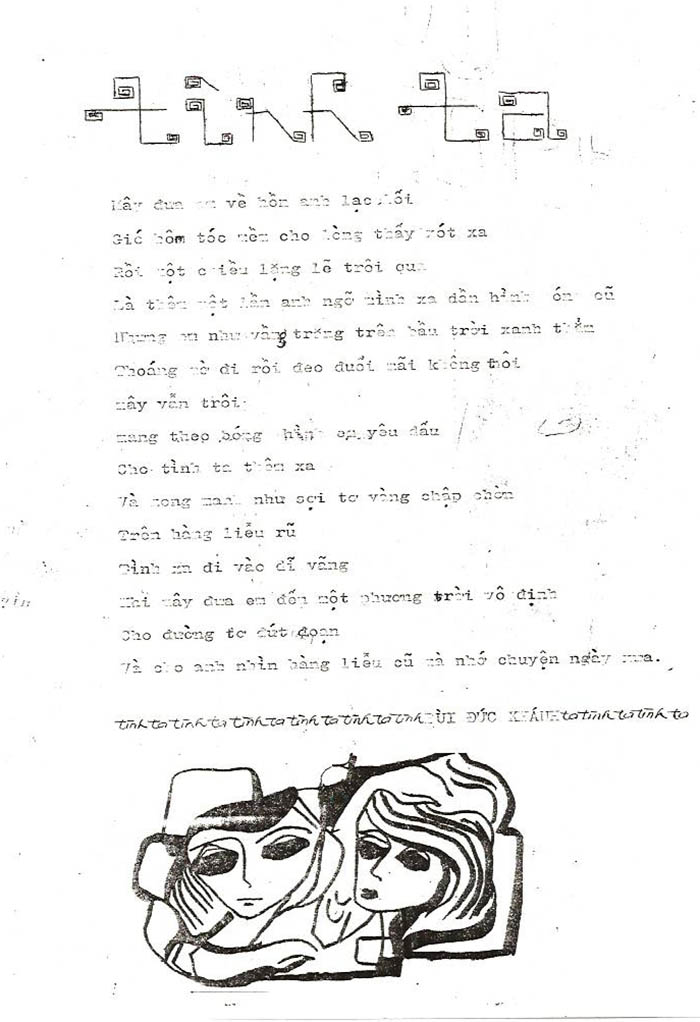 tình ta
Mây đưa em về hồn anh lạc lối
Gió hôm tóc mềm cho lòng thấy xót xa
Rồi một chiều lặng lẽ trôi qua
Là thêm một lần anh ngỡ mình xa dần hình bóng cũ
Nhưng em như vầng trăng trên bầu trời xanh thẳm
Thoáng mờ đi rồi đeo đuổi mãi không thôi
mây vẫn trôi
mang theo bóng hình em yêu dấu
Cho tình ta thêm xa
Và mong manh như sợi tơ vàng chập chờn
Trên hàng liễu rũ
Tình xa đi vào dĩ vãng
Khi mây đưa em đến một phương trời vô định
Cho đường tơ đứt đoạn
Và cho anh nhìn hàng liễu cũ mà nhớ chuyện ngày xưa.
tình ta tình ta tình ta tình ta tình ta tình BÙI ĐỨC KHÁNH ta tình ta tình ta